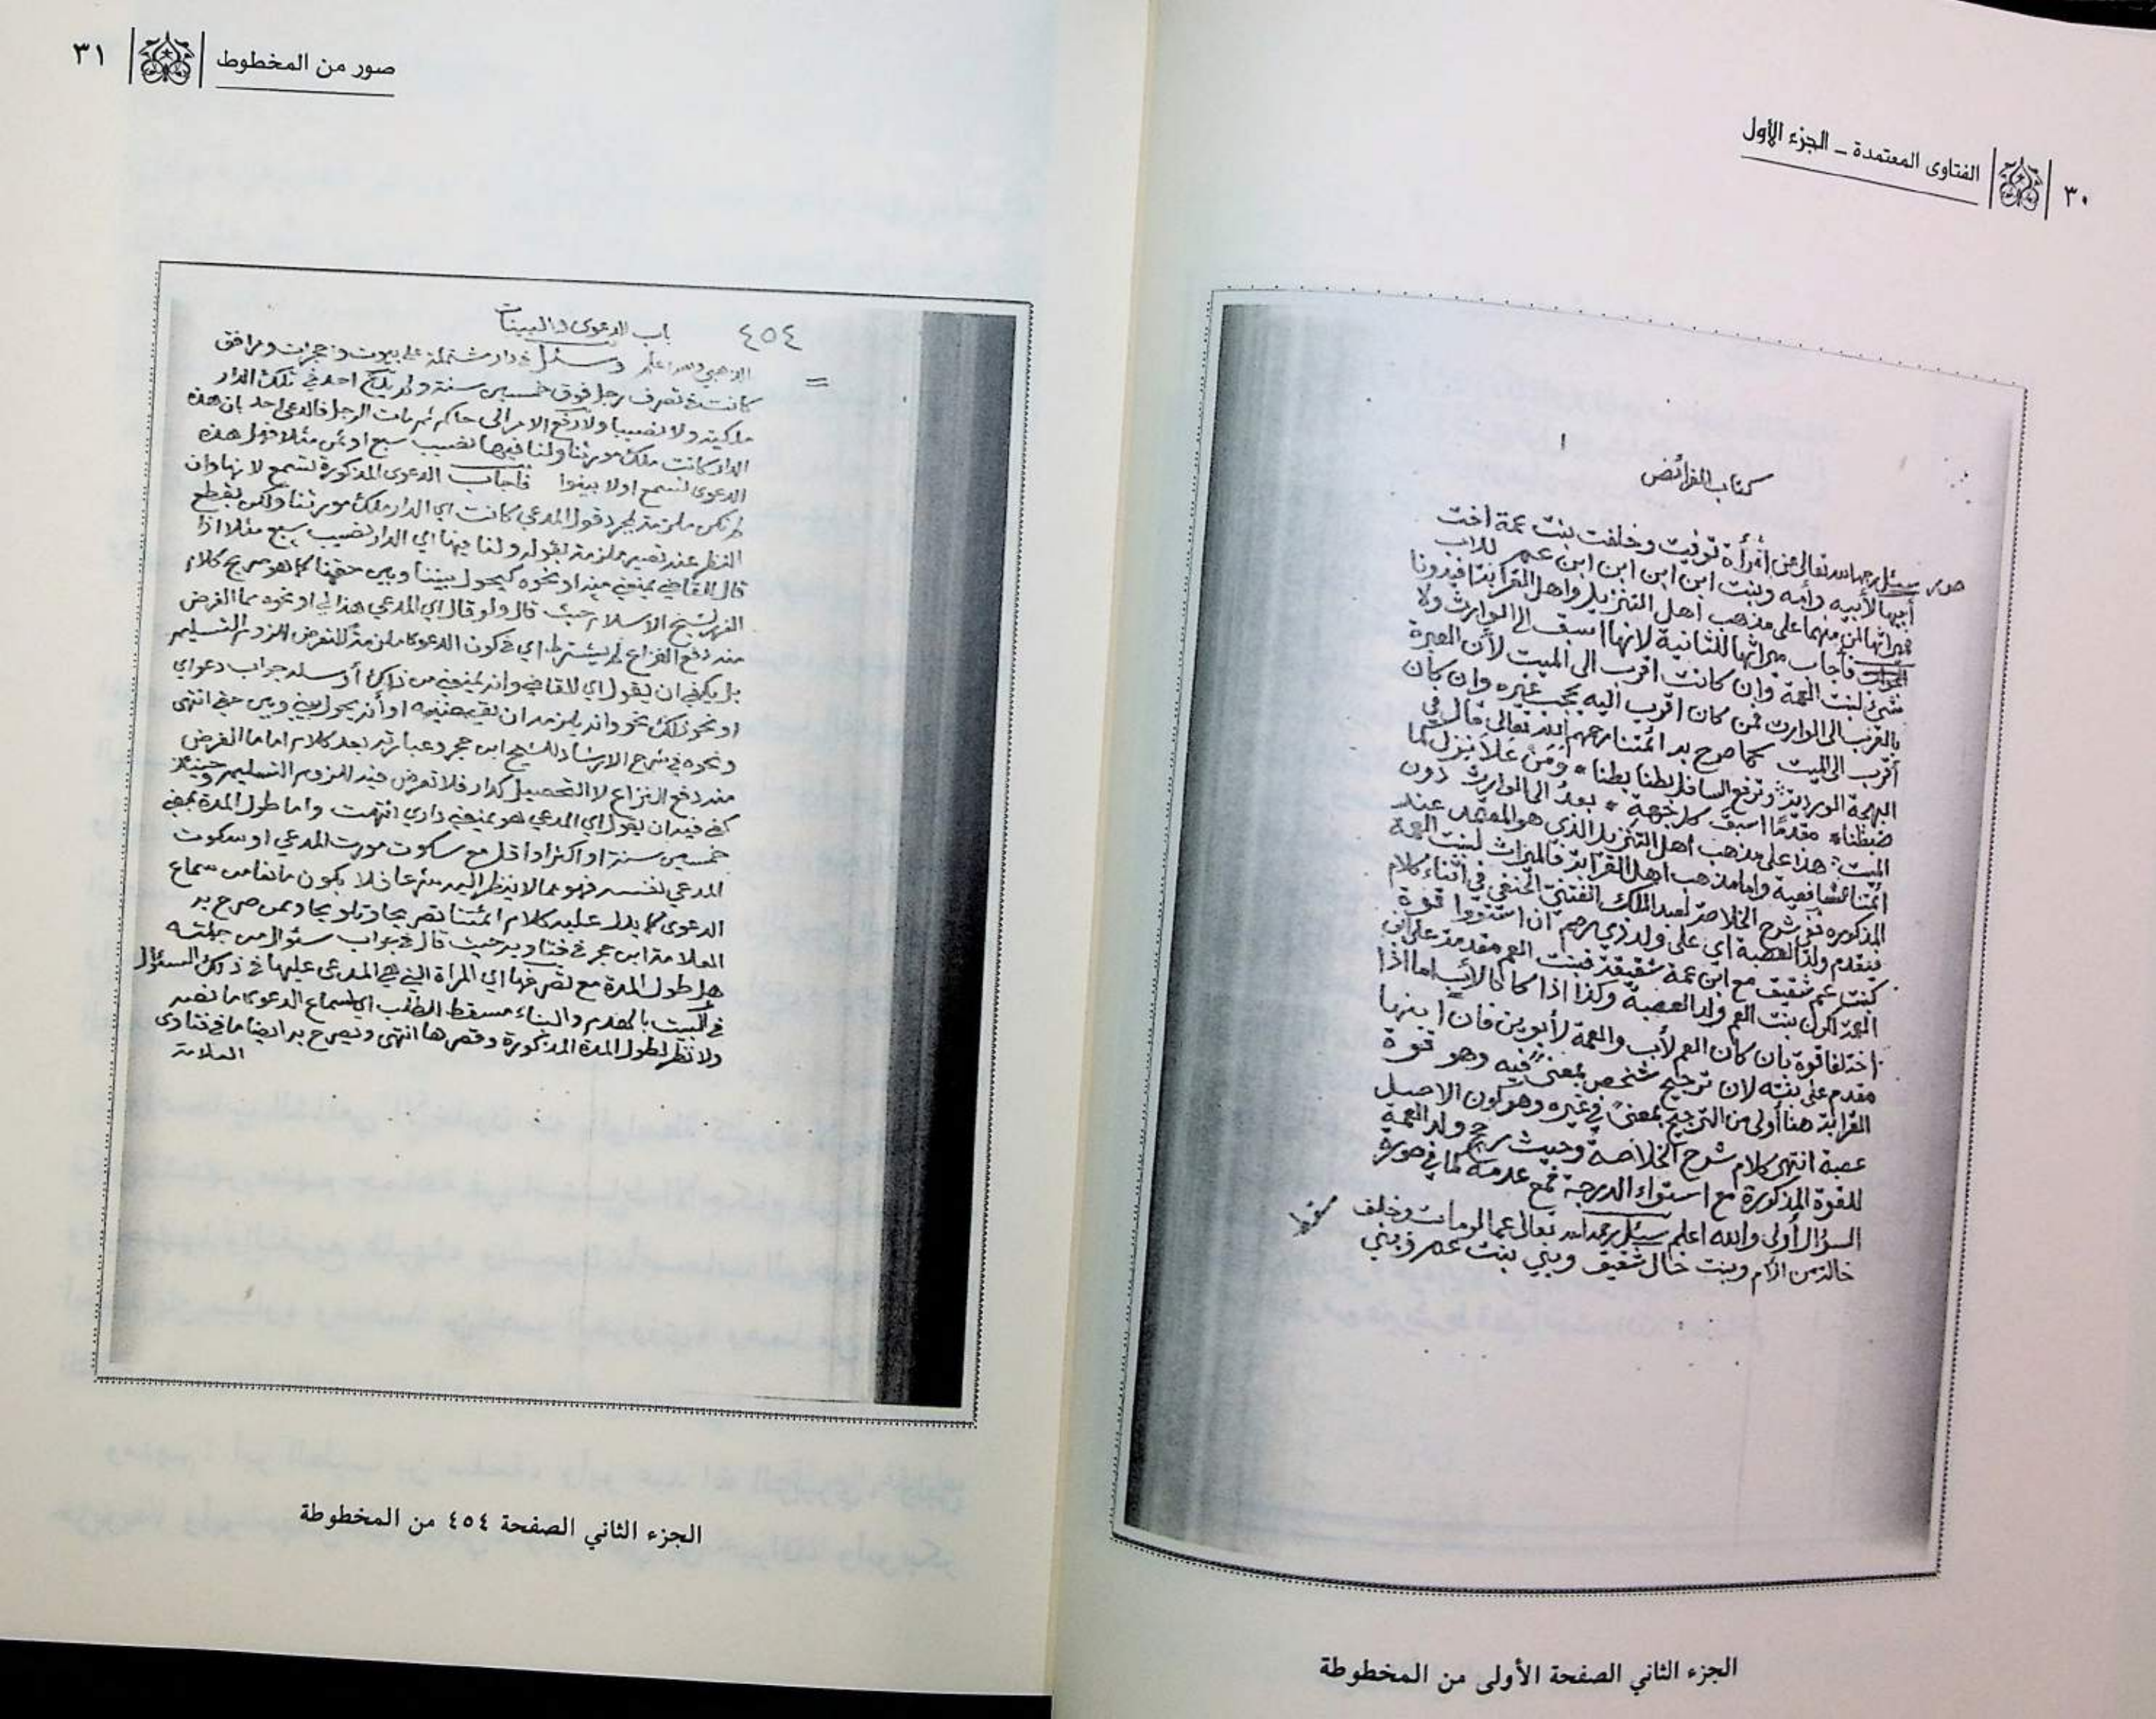 ٣٠
الفتاوى المعتمدة ـ الجزء الأول
١
كتاب الفرائض
سئل رحمه الله تعالى عن امرأة توفيت وخلفت بنت عمة اخت
أبيها لأبيه وأمه وبنت ابن ابن ابن ابن عم للاب
فميراثها لمن منهما على مذهب أهل التنزيل واهل القرابة افيدونا
الجواب فأجاب ميراثها للثانية لانها اسبق الى الوارث ولا
شئ لبنت العمة وإن كانت اقرب الى الميت لأن العبرة
بالقرب الى الوارث فمن كان اقرب اليه يحجب غيره وان كان
أقرب الى الميت كما صرح به ائمتنا رحمهم الله تعالى قال في
البهجة الوردية وترفع السافل بطنا بطنا ومن علا ينزل كما
ضبطنا مقدما اسبق كل جهة بعد الى الوارث دون
الميت هذا على مذهب أهل التنزيل الذي هو المعتمد عند
ائمتنا الشافعية واما مذهب اهل القرابة فالميراث لبنت العمة
المذكوره ففي شرح الخلاصة لعبد الملك الفتني الحنفي في اثناء كلام
فيقدم ولد العصبة اي على ولد ذي رحم ان استووا قوة
كبنت عم شقيق مع ابن عمة شقيقة فبنت العم مقدمة على ابن
العمة لكون بنت العم ولد العصبة وكذا اذا كانا لأب اما اذا
اختلفا قوة بان كان العم لأب والعمة لأبوين فان ابنها
مقدم على بنته لان ترجيح شخص بمعنى فيه وهو قوة
القرابة هنا أولى من الترجيح بمعنى في غيره وهو كون الاصل
عصبة انتهى كلام شرح الخلاصة وحيث رجح ولد العمة
للقوة المذكورة مع استواء الدرجة فمع عدمه كما في صورة
السؤال أولى والله اعلم سئل رحمه الله تعالى عما لو مات وخلف
خالة من الأم وبنت خال شقيق وبني بنت عم
الجزء الثاني الصفحة الأولى من المخطوطة
صور من المخطوط
٣١
٤٥٤
باب الدعوى والبينات
وسئل في دار مشتملة على بيوت وحجرات ومرافق
كانت في تصرف رجل فوق خمسين سنة ولم يدع احد في تلك الدار
ملكية ولا نصيبا ولا رفع الامر الى حاكم ثم مات الرجل فادعى احد بان هذه
الدار كانت ملك مورثنا ولنا فيها نصيب سبع او ثمن مثلا فهل هذه
الدعوى تسمع اولا بينوا فأجاب الدعوى المذكورة تسمع لانها وان
لم تكن ملزمة بمجرد قول المدعي كانت اي الدار ملك مورثنا ولكن بقطع
النظر عنه تصير ملزمة بقوله ولنا فيها اي الدار نصيب سبع مثلا اذا
قال للقاضي يمنعني منه او نحوه كيحول بيننا وبين حقنا كما هو صريح كلام
الغرر لشيخ الاسلام حيث قال ولو قال اي المدعي هذا لي او نحوه مما الغرض
منه دفع النزاع لم يشترط اي في كون الدعوى ملزمة التعرض للزوم التسليم
بل يكفي ان يقول اي للقاضي وانه يمنعني من ذلك أو سله جواب دعواي
او نحو ذلك نحو وانه يلزمه ان يقبضنيه او أنه يحول بيني وبين حقي انتهى
ونحوه في شرح الارشاد للشيخ ابن حجر وعبارته بعد كلام اما ما الغرض
منه دفع النزاع لا التحصيل كدار فلا تعرض فيه للزوم التسليم وحينئذ
كفى فيه ان يقول اي المدعي هو يمنعني داري انتهت واما طول المدة بمضي
خمسين سنة او اكثر او اقل مع سكوت مورث المدعي او سكوت
المدعي نفسه فهو مما لا ينظر اليه شرعا فلا يكون مانعا من سماع
الدعوى كما يدل عليه كلام ائمتنا تصريحا وتلويحا وممن صرح به
العلامة ابن حجر في فتاويه حيث قال في جواب سئوال من جملته
هل طول المدة مع تصرفها اي المراة التي هي المدعى عليها في ذلك السئوال
في البيت بالهدم والبناء مسقط الطلب
ولا نظر لطول المدة المذكورة وقصرها انتهى ويصرح به ايضا ما في فتاوى
العلامة
الجزء الثاني الصفحة ٤٥٤ من المخطوطة